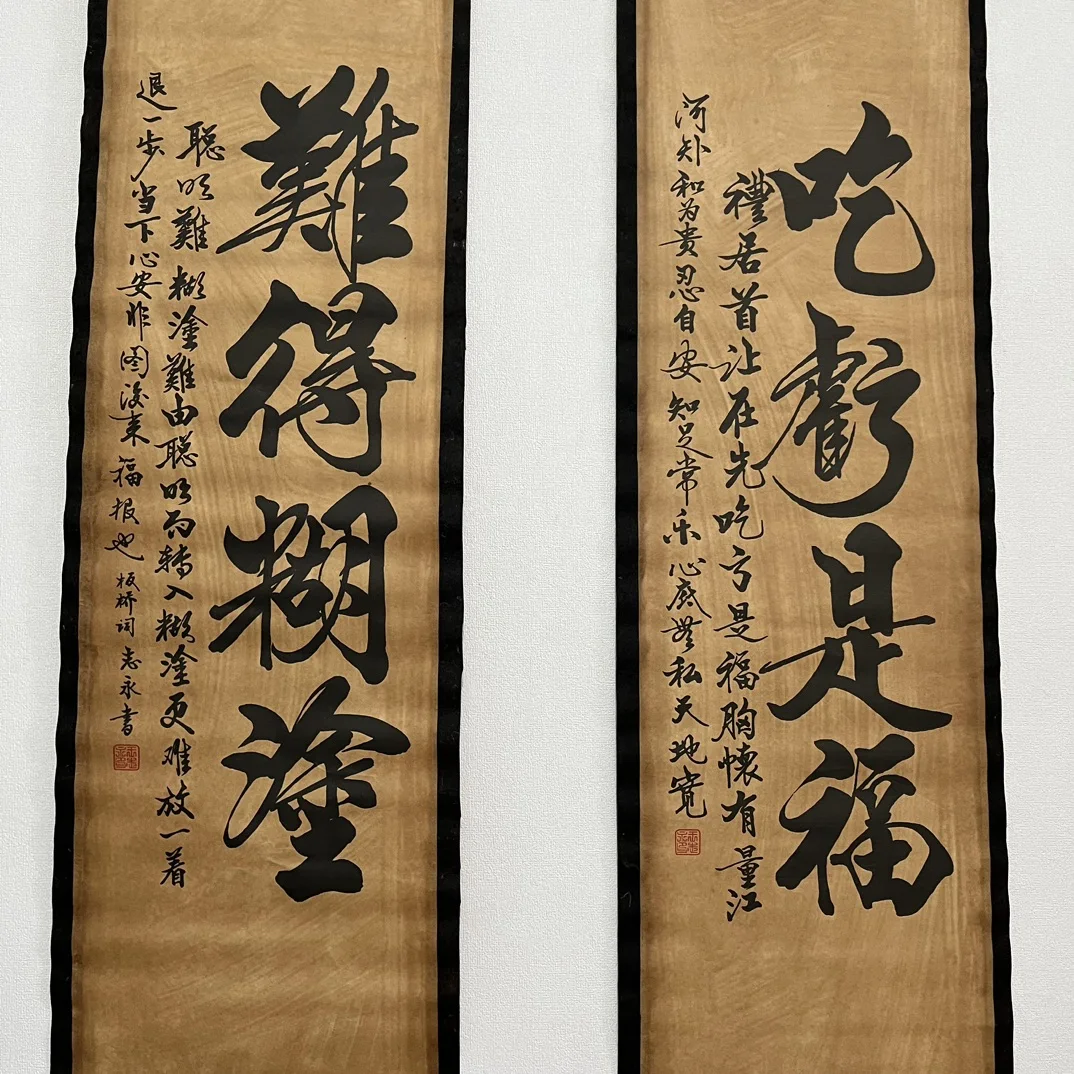 吃虧是福
禮居首让在先吃亏是福胸懷有量江
河妚和为贵忍自安知足常乐心底無私天地寬
難得糊塗
聪明難糊塗難由聪明而轉入糊塗更难放一着
退一步当下心安非图後来福报也板桥词志永書